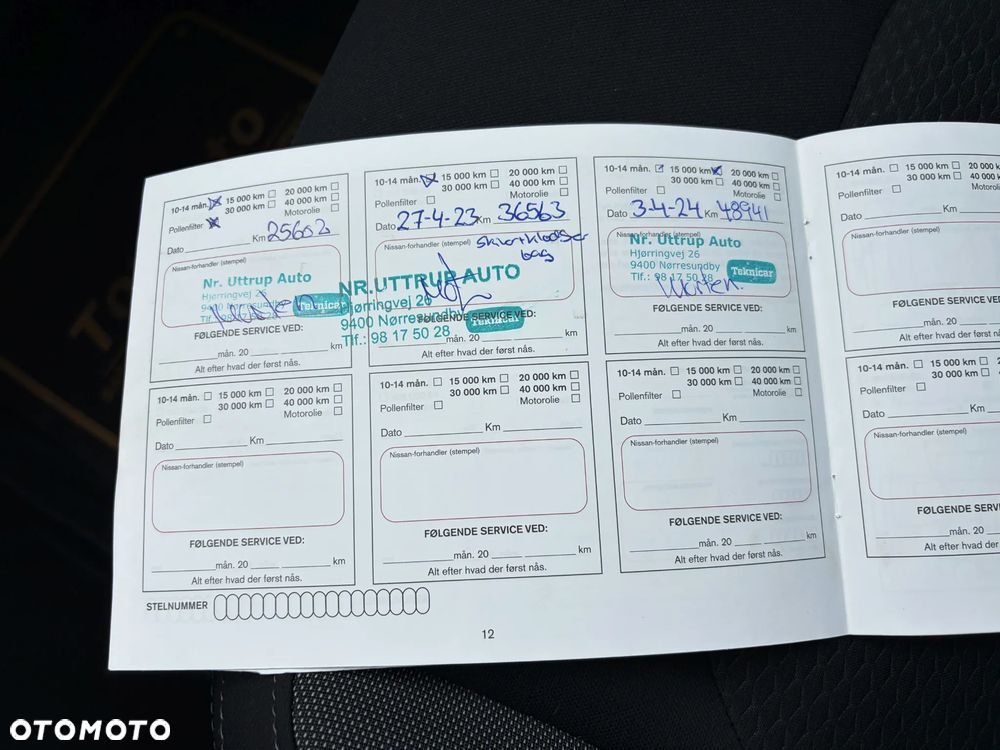 10-14 mån. 15 000 km 20 000 km
30 000 km 40 000 km
Pollenfilter Motorolie
Dato Km 25602
Nissan-forhandler (stempel)
Nr. Uttrup Auto
Hjørringvej 2
9400 Nørresundby
Teknicar
FØLGENDE SERVICE VED:
mån. 20 km
Alt efter hvad der først nås.
10-14 mån. 15 000 km 20 000 km
30 000 km 40 000 km
Pollenfilter Motorolie
Dato 27-4-23 Km 36563
Nissan-forhandler (stempel) skiverklodser
bag
NR. UTTRUP AUTO
Hjørringvej 26
9400 Nørresundby
Tlf.: 98 17 50 28
Teknicar
FØLGENDE SERVICE VED:
mån. 20 km
Alt efter hvad der først nås.
10-14 mån. 15 000 km 20 000 km
30 000 km 40 000 km
Pollenfilter Motorolie
Dato 3-4-24 Km 48941
Nissan-forhandler (stempel)
Nr. Uttrup Auto
Hjørringvej 26
9400 Nørresundby
Tlf.: 98 17 50 28
Teknicar
Morten
FØLGENDE SERVICE VED:
mån. 20 km
Alt efter hvad der først nås.
10-14 mån. 15 000 km 20
30 000 km 40
Pollenfilter Mo
Dato Km
Nissan-forhandler (stempel)
FØLGENDE SERV
mån. 20
Alt efter hvad der først
10-14 mån. 15 000 km 20 000 km
30 000 km 40 000 km
Pollenfilter Motorolie
Dato Km
Nissan-forhandler (stempel)
FØLGENDE SERVICE VED:
mån. 20 km
Alt efter hvad der først nås.
10-14 mån. 15 000 km 20 000 km
30 000 km 40 000 km
Pollenfilter Motorolie
Dato Km
Nissan-forhandler (stempel)
FØLGENDE SERVICE VED:
mån. 20 km
Alt efter hvad der først nås.
10-14 mån. 15 000 km 20 000 km
30 000 km 40 000 km
Pollenfilter Motorolie
Dato Km
Nissan-forhandler (stempel)
FØLGENDE SERVICE VED:
mån. 20 km
Alt efter hvad der først nås.
10-14 mån. 15 000 km
30 000 km
Pollenfilter
Dato Km
Nissan-forhandler (stempel)
FØLGENDE SER
mån. 20
Alt efter hvad der
STELNUMMER
12
OTOMOTO